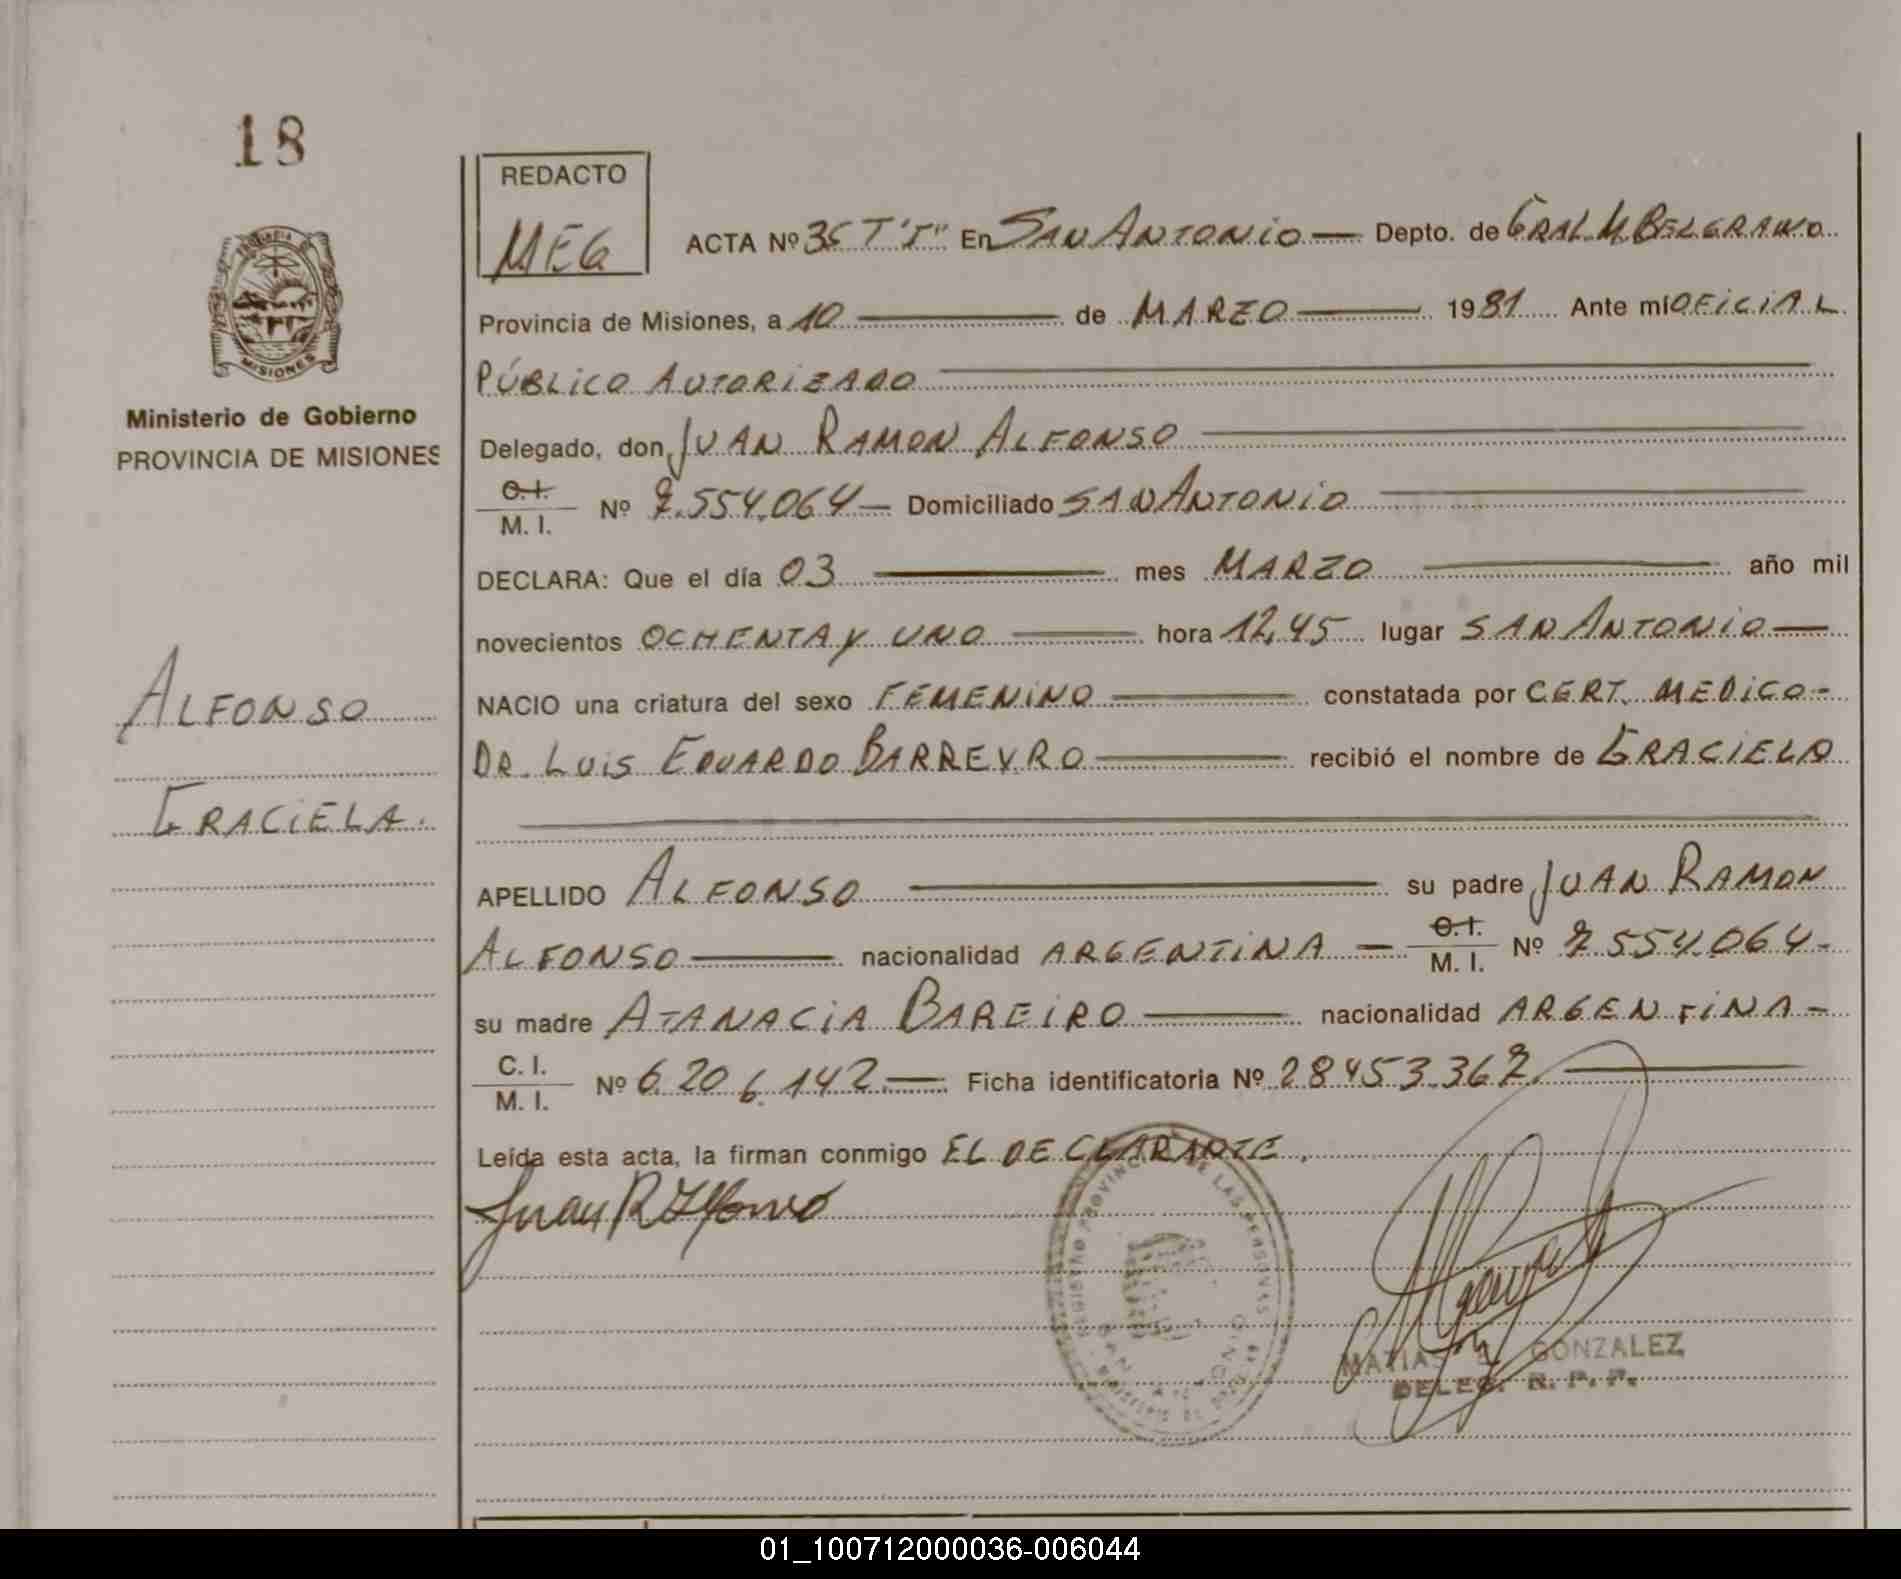 18
REDACTO
MEG
ACTA Nº 35 T "I" En SAN ANTONIO — Depto. de GRAL M. BELGRANO
PROVINCIA DE MISIONES
Ministerio de Gobierno
PROVINCIA DE MISIONES
Provincia de Misiones, a 10 — de MARZO — 1981 Ante mí OFICIAL
PÚBLICO AUTORIZADO
Delegado, don JUAN RAMON ALFONSO
C.I.
M. I. Nº 7.554.064 — Domiciliado SAN ANTONIO
DECLARA: Que el día 03 — mes MARZO — año mil
novecientos OCHENTA y UNO — hora 12,45 lugar SAN ANTONIO —
NACIO una criatura del sexo FEMENINO — constatada por CERT. MEDICO-
DR. LUIS EDUARDO BARREYRO — recibió el nombre de GRACIELA
ALFONSO
GRACIELA.
APELLIDO ALFONSO — su padre JUAN RAMON
ALFONSO — nacionalidad ARGENTINA — C.I. M. I. Nº 7.554.064-
su madre ATANACIA BAREIRO — nacionalidad ARGENTINA -
C. I.
M. I. Nº 6.206.142 — Ficha identificatoria Nº 28453.367 —
Leída esta acta, la firman conmigo EL DECLARANTE.
Juan R Alfonso
REGISTRO PROVINCIAL DE LAS PERSONAS
MATIAS GONZALEZ
DELEG. R. P. P.
01_100712000036-006044